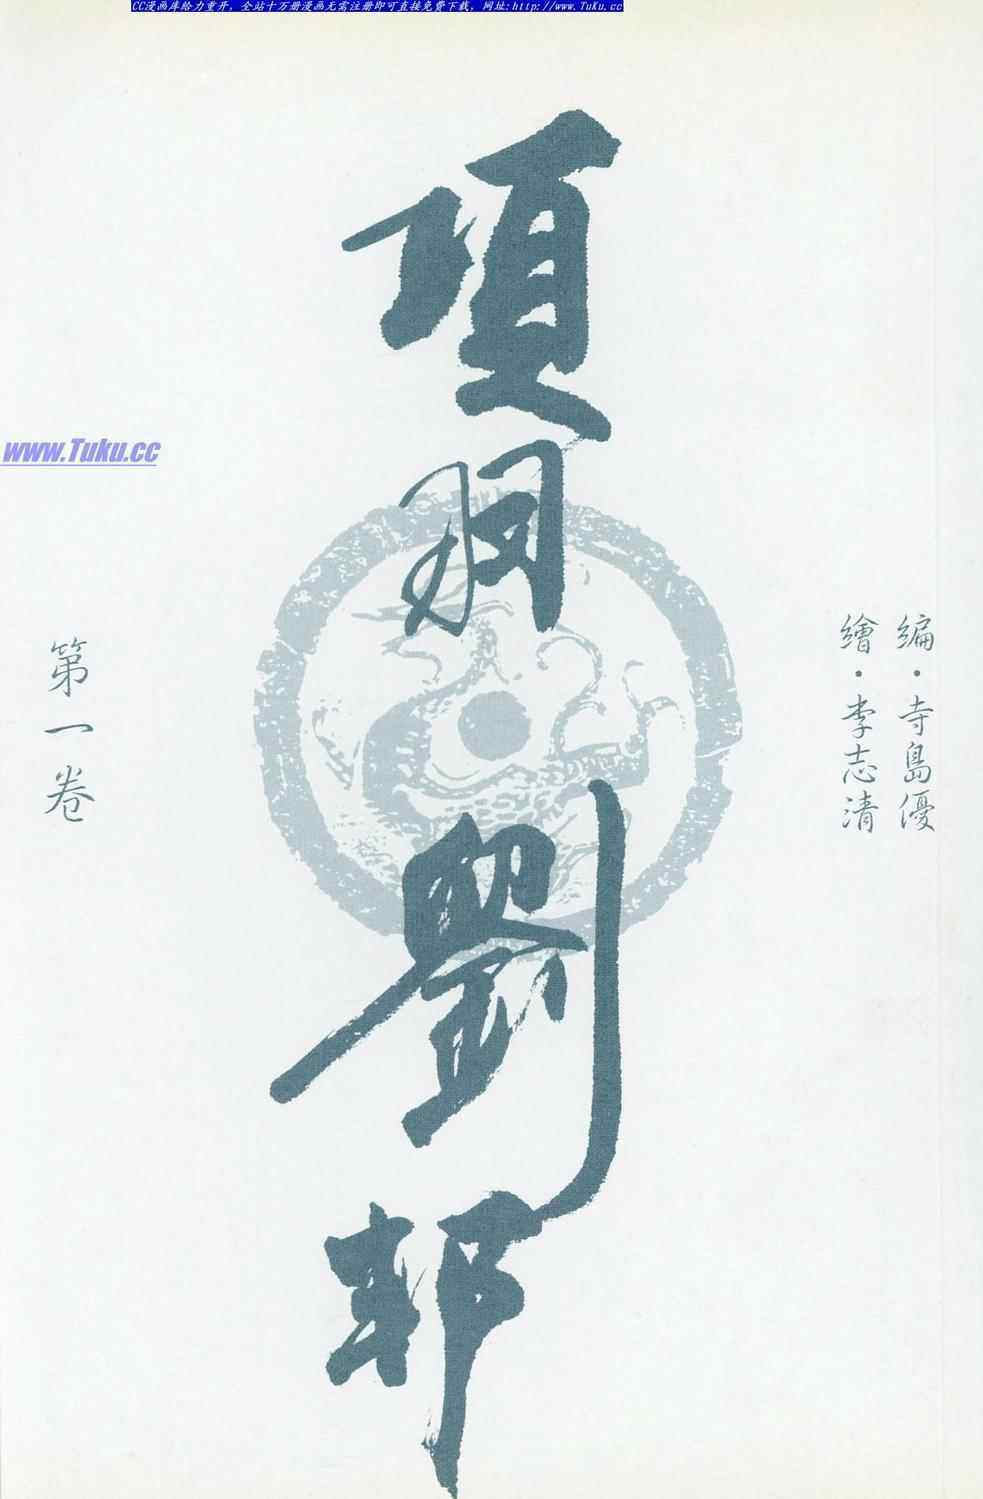 CC漫画库给力重开，全站十万册漫画无需注册即可直接免费下载，网址:http://www.Tuku.cc
編・寺島優
繪・李志清
項羽
劉邦
第一卷
www.Tuku.cc